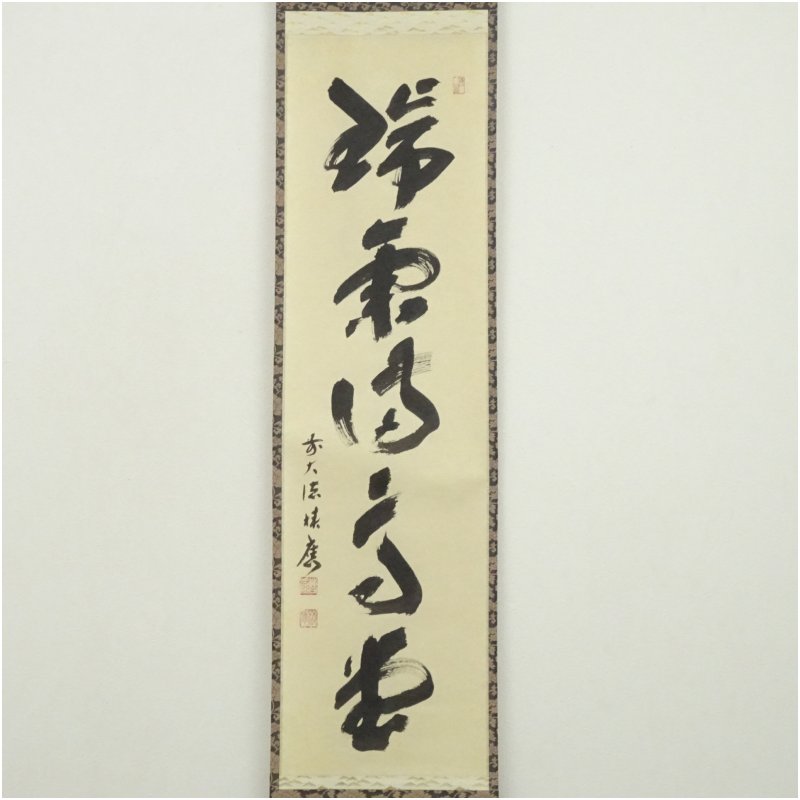 瑞氣満高堂
前大徳棲應